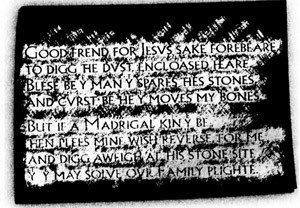 GOOD FREND FOR JESUS SAKE FOREBEARE
TO DIGG THE DVST ENCLOASED HEARE
BLESE BE Y MAN Y SPARES HES STONES
AND CVRST BE HE Y MOVES MY BONES
BUT IF A MADRIGAL KIN Y BE
THEN PLEES MINE WISH REVERSE FOR ME
AND DIGG AWEIGH AT HIS STONE SITE
Y Y MAY SOLVE OVR FAMILY PLIGHTE